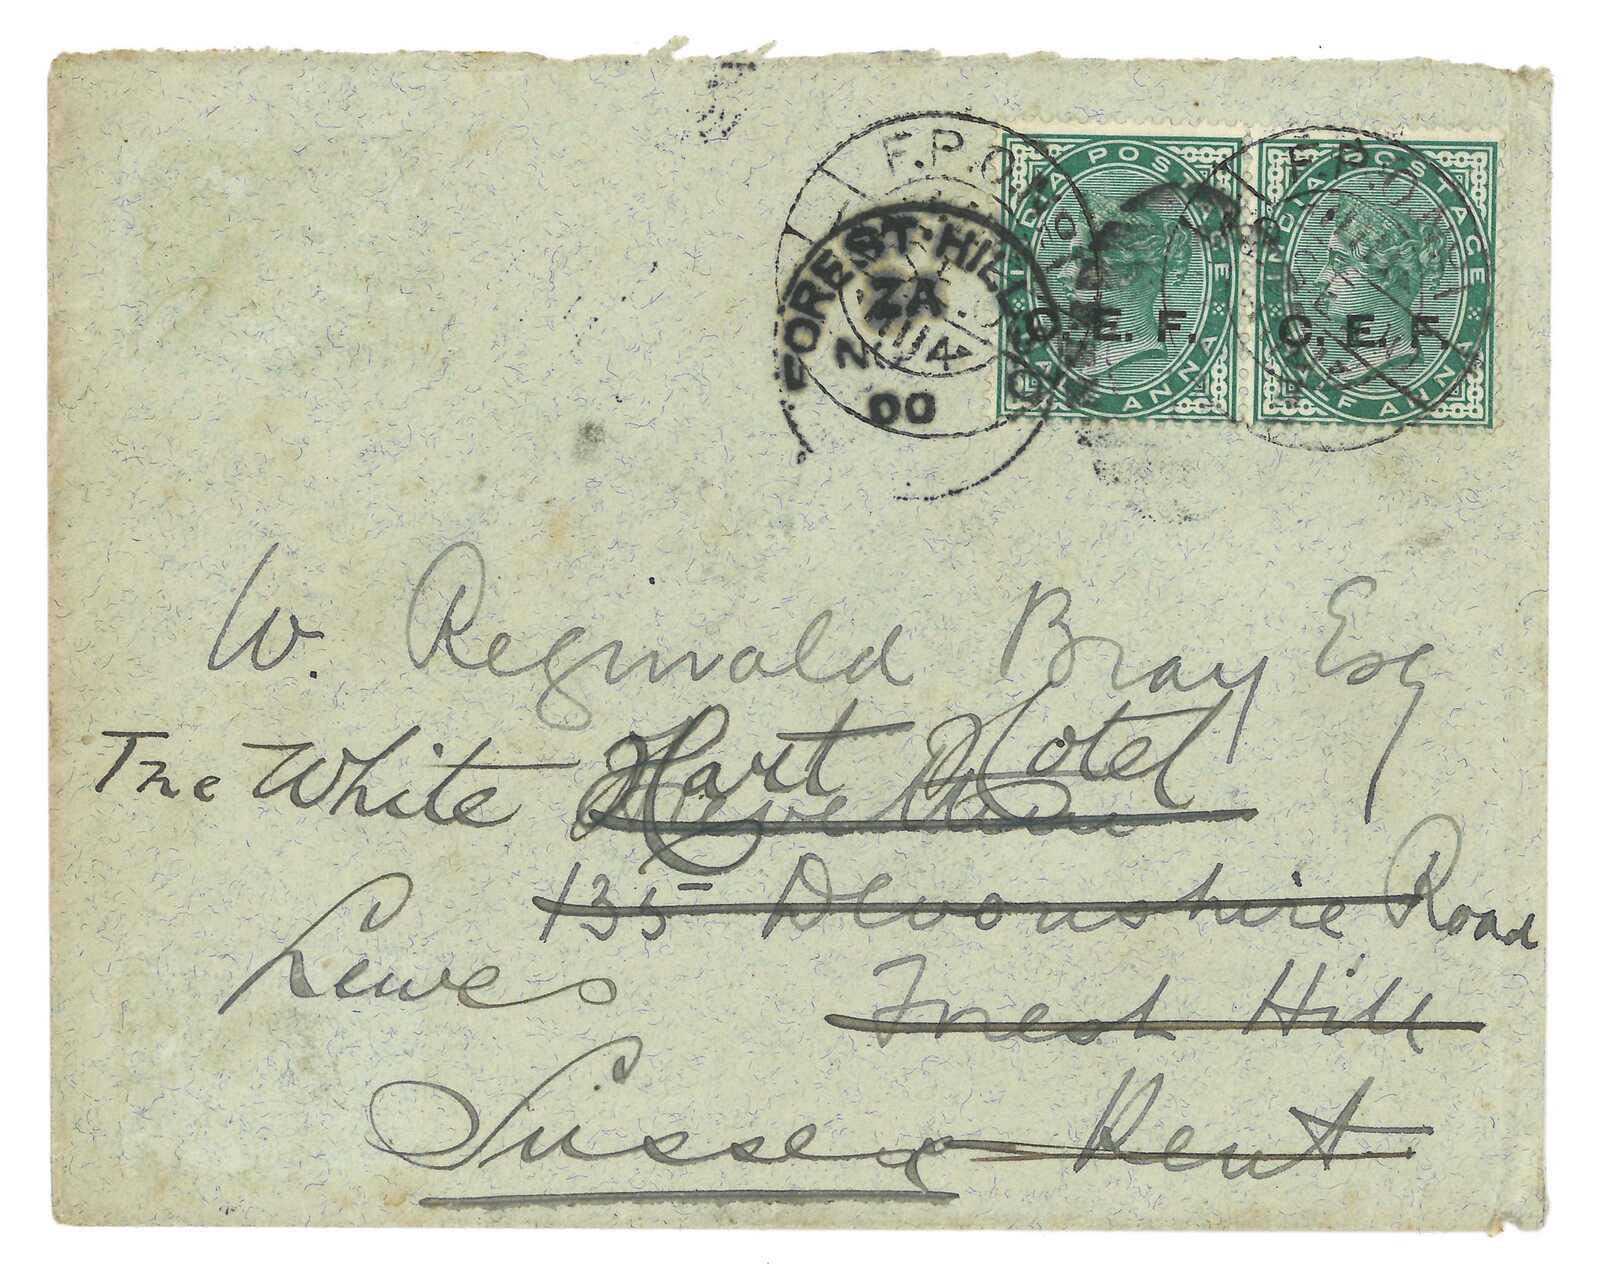 F.P.O. No
F.P.O. No
FOREST HILL
ZA
00
INDIA POSTAGE
C. E. F.
HALF ANNA
INDIA POSTAGE
C. E. F.
HALF ANNA
W. Reginald Bray Esq
The White Hart Hotel
135 Devonshire Road
Lewes
Forest Hill
Sussex Kent